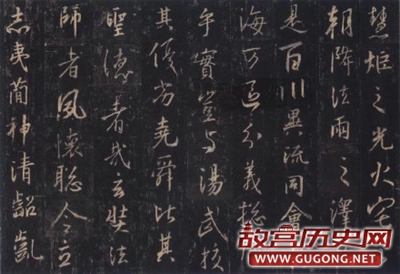 慧炬之光火宅
朝降法雨之澤
是百川異流同會
海万區分義總
乎實豈與湯武校
其優劣堯舜比其
聖德者哉玄奘法
師者夙懷聰令立
志夷簡神清齠齔
故宫历史网
WWW.GUGONG.NET